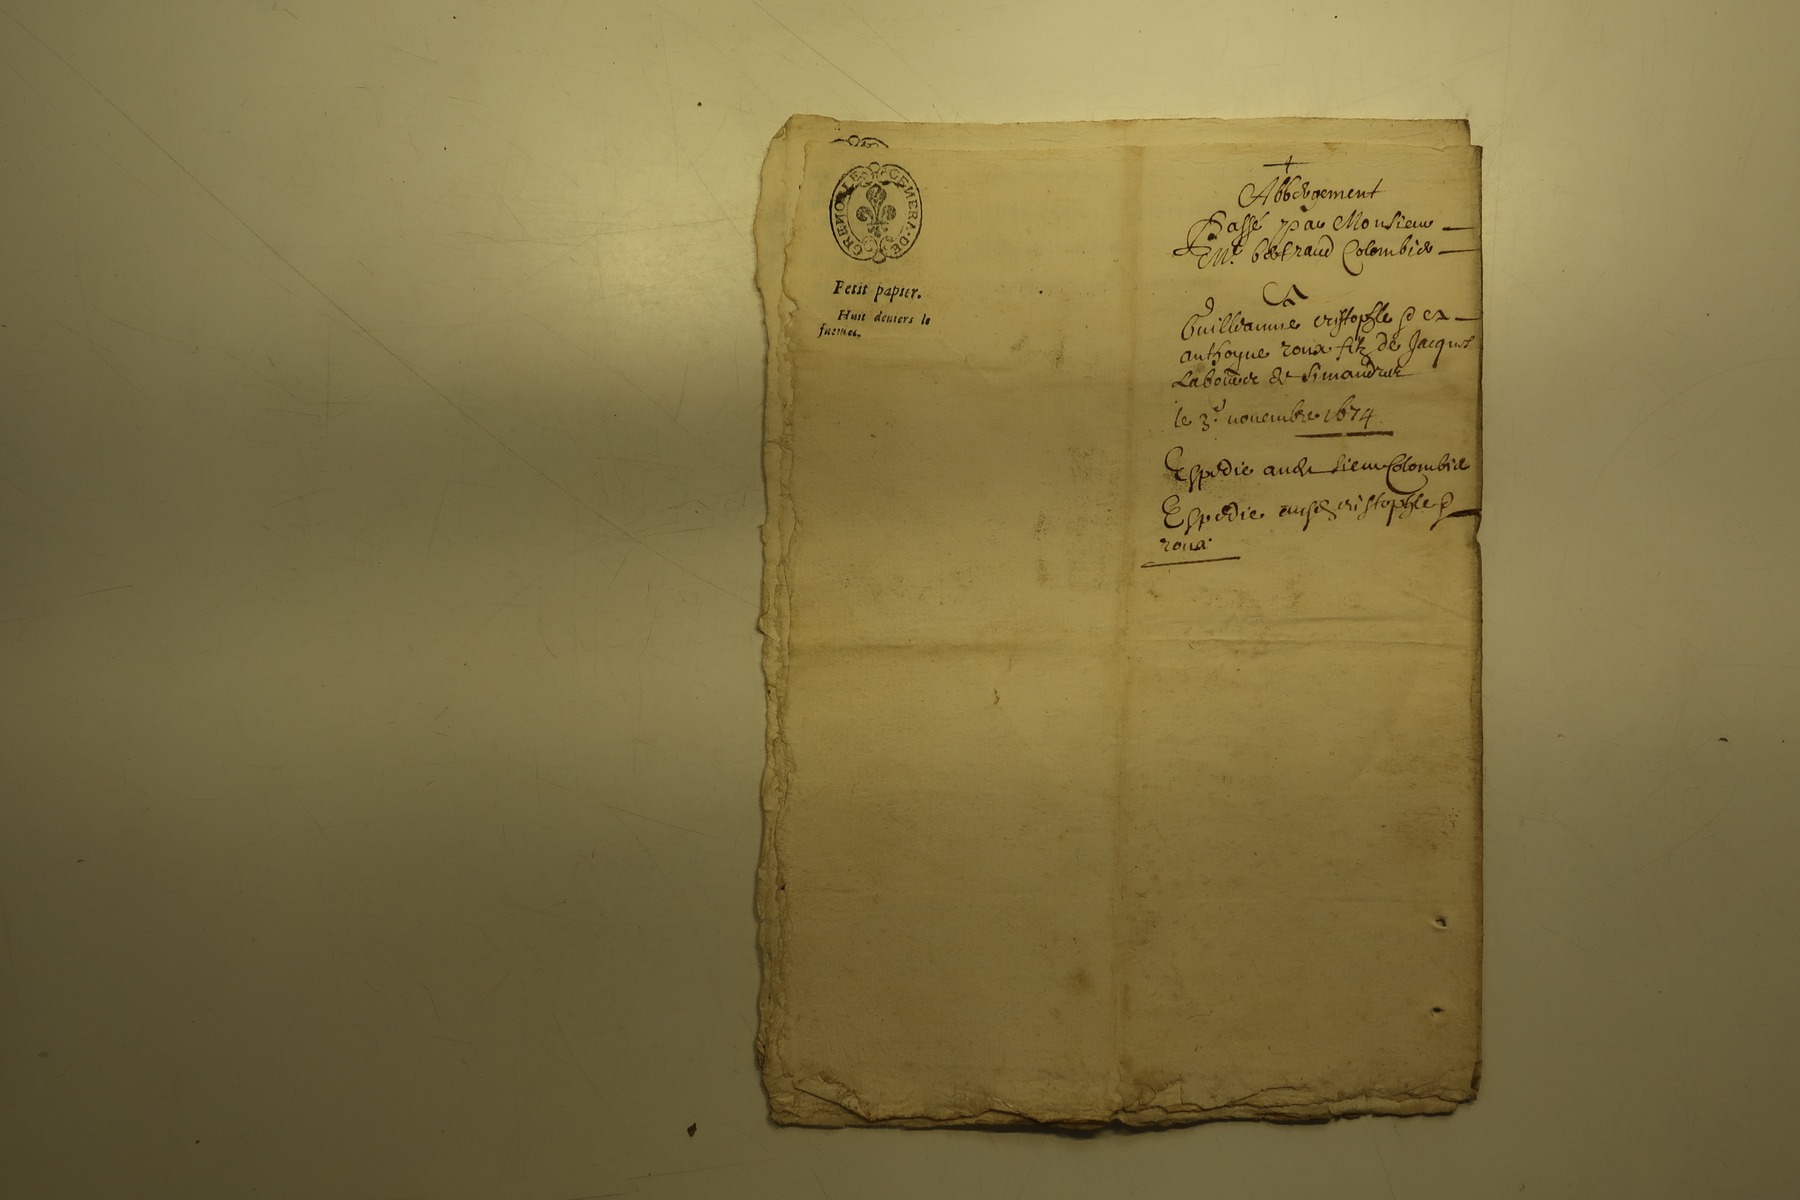 GENERA. DE GRENOBLE
Petit papier.
Huit deniers le
fueillet.
Abbergement
Passé par Monsieur
Mr. bertrand Colombier
A
Guilleaume cristophle &
anthoyne roux filz de Jacques
Laboureur de Simandres
le 3e novembre 1674
Expedie audt sieur Colombier
Expedie cristophle &
roux